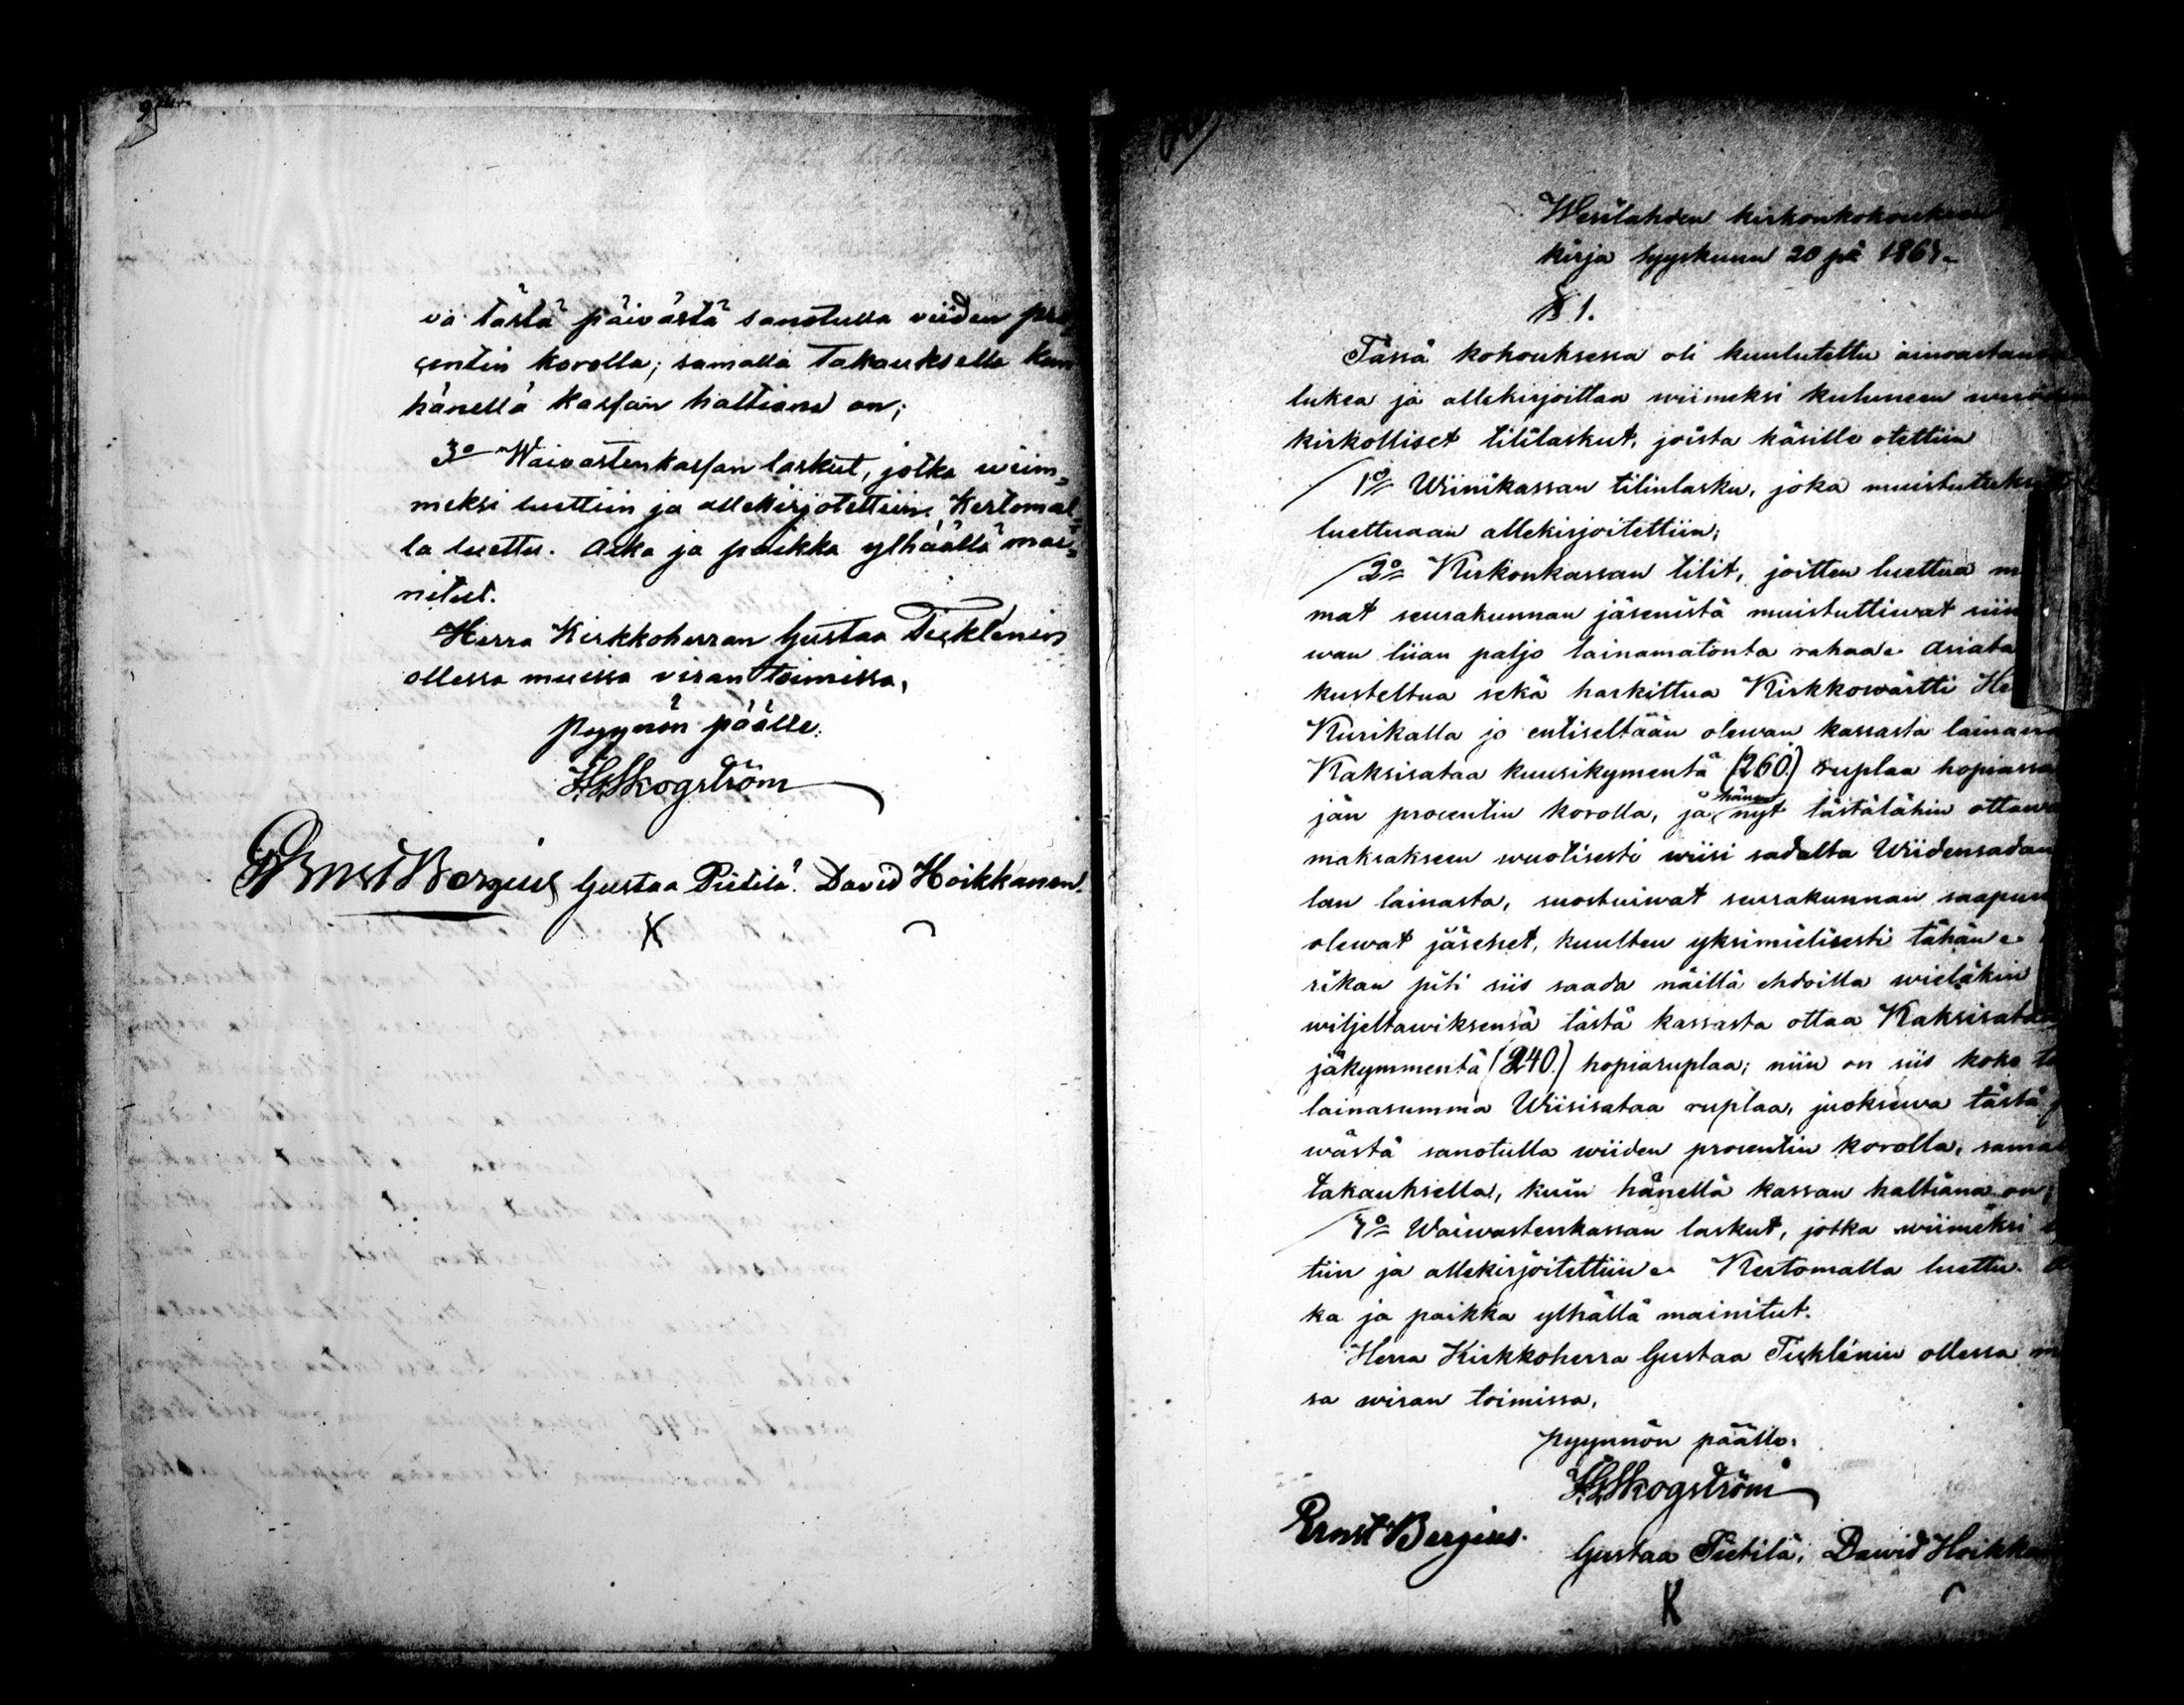 va tästä päivästä sanotulla viiden pro
çentin korolla; samalla takauksella kun
hänellä kassan haltiana on;
3o Waivastenkassan laskut, jotka wiim„
meksi luettiin ja allekirjotettiin. Kertomal„
la luettu. Aika ja paikka ylhäällä mai„
nitut.
Herra Kirkkoherran Gustaa Ticklénin
ollessa muissa viran toimissa,
pyynön päälle.
HGSkogström
Ernst Bergius Gustaa Pietilä. David Hoikkanen.
Wesilahden kirkonkokouksen
kirja Syyskuun 20 pä
§ 1.
Tässä kokouksessa oli kuulutettu ainoastansa
lukea ja allekirjoittaa wiimeksi kuluneen wuoden
kirkolliset tililaskut, joista käsille otettiin
1o Wiinikassan tilinlasku, joka muistutuksit
luettuaan allekirjoitettiin;
2o Kirkonkassan tilit, joitten luettua
mat seurakunnan jäsenistä muistuttiwat siin
wan liian paljo lainamatonta rahaa. Asiata
kusteltua sekä harkittua Kirkkowärtti He
Kurikalla jo entiseltään olewan kassasta lainana
Kaksisataa kuusikymentä (260.) ruplaa hopiassa
jän procentin korolla, ja hänen nyt tästälähin ottawa
maksakseen wuotisesti wiisi sadalta Wiidensadan
lan lainasta, suostuiwat seurakunnan saapuu
olewat jäsenet, kuulten yksimielisesti tähän.
rikan piti siis saada näillä ehdoilla wieläkin
wiljeltawiksensä tästä kassasta ottaa Kaksisataa
jäkymmentä (240.) hopiaruplaa; niin on siis koko
lainasumma Wiisisataa ruplaa, juoksewa tästä
wästä sanotulla wiiden procentin korolla, sama
takauksella, kuin hänellä kassan haltiana on;
3o Waiwastenkassan laskut, jotka wiimeksi
tiin ja allekirjoitettiin. Kertomalla luettu.
ka ja paikka ylhällä mainitut.
Herra Kirkkoherra Gustaa Ticklénin ollessa
sa wiran toimissa,
pyynnön päälle.
HGSkogström
Ernst Bergius.
Gustaa Pietilä, Dawid Hoikka
K